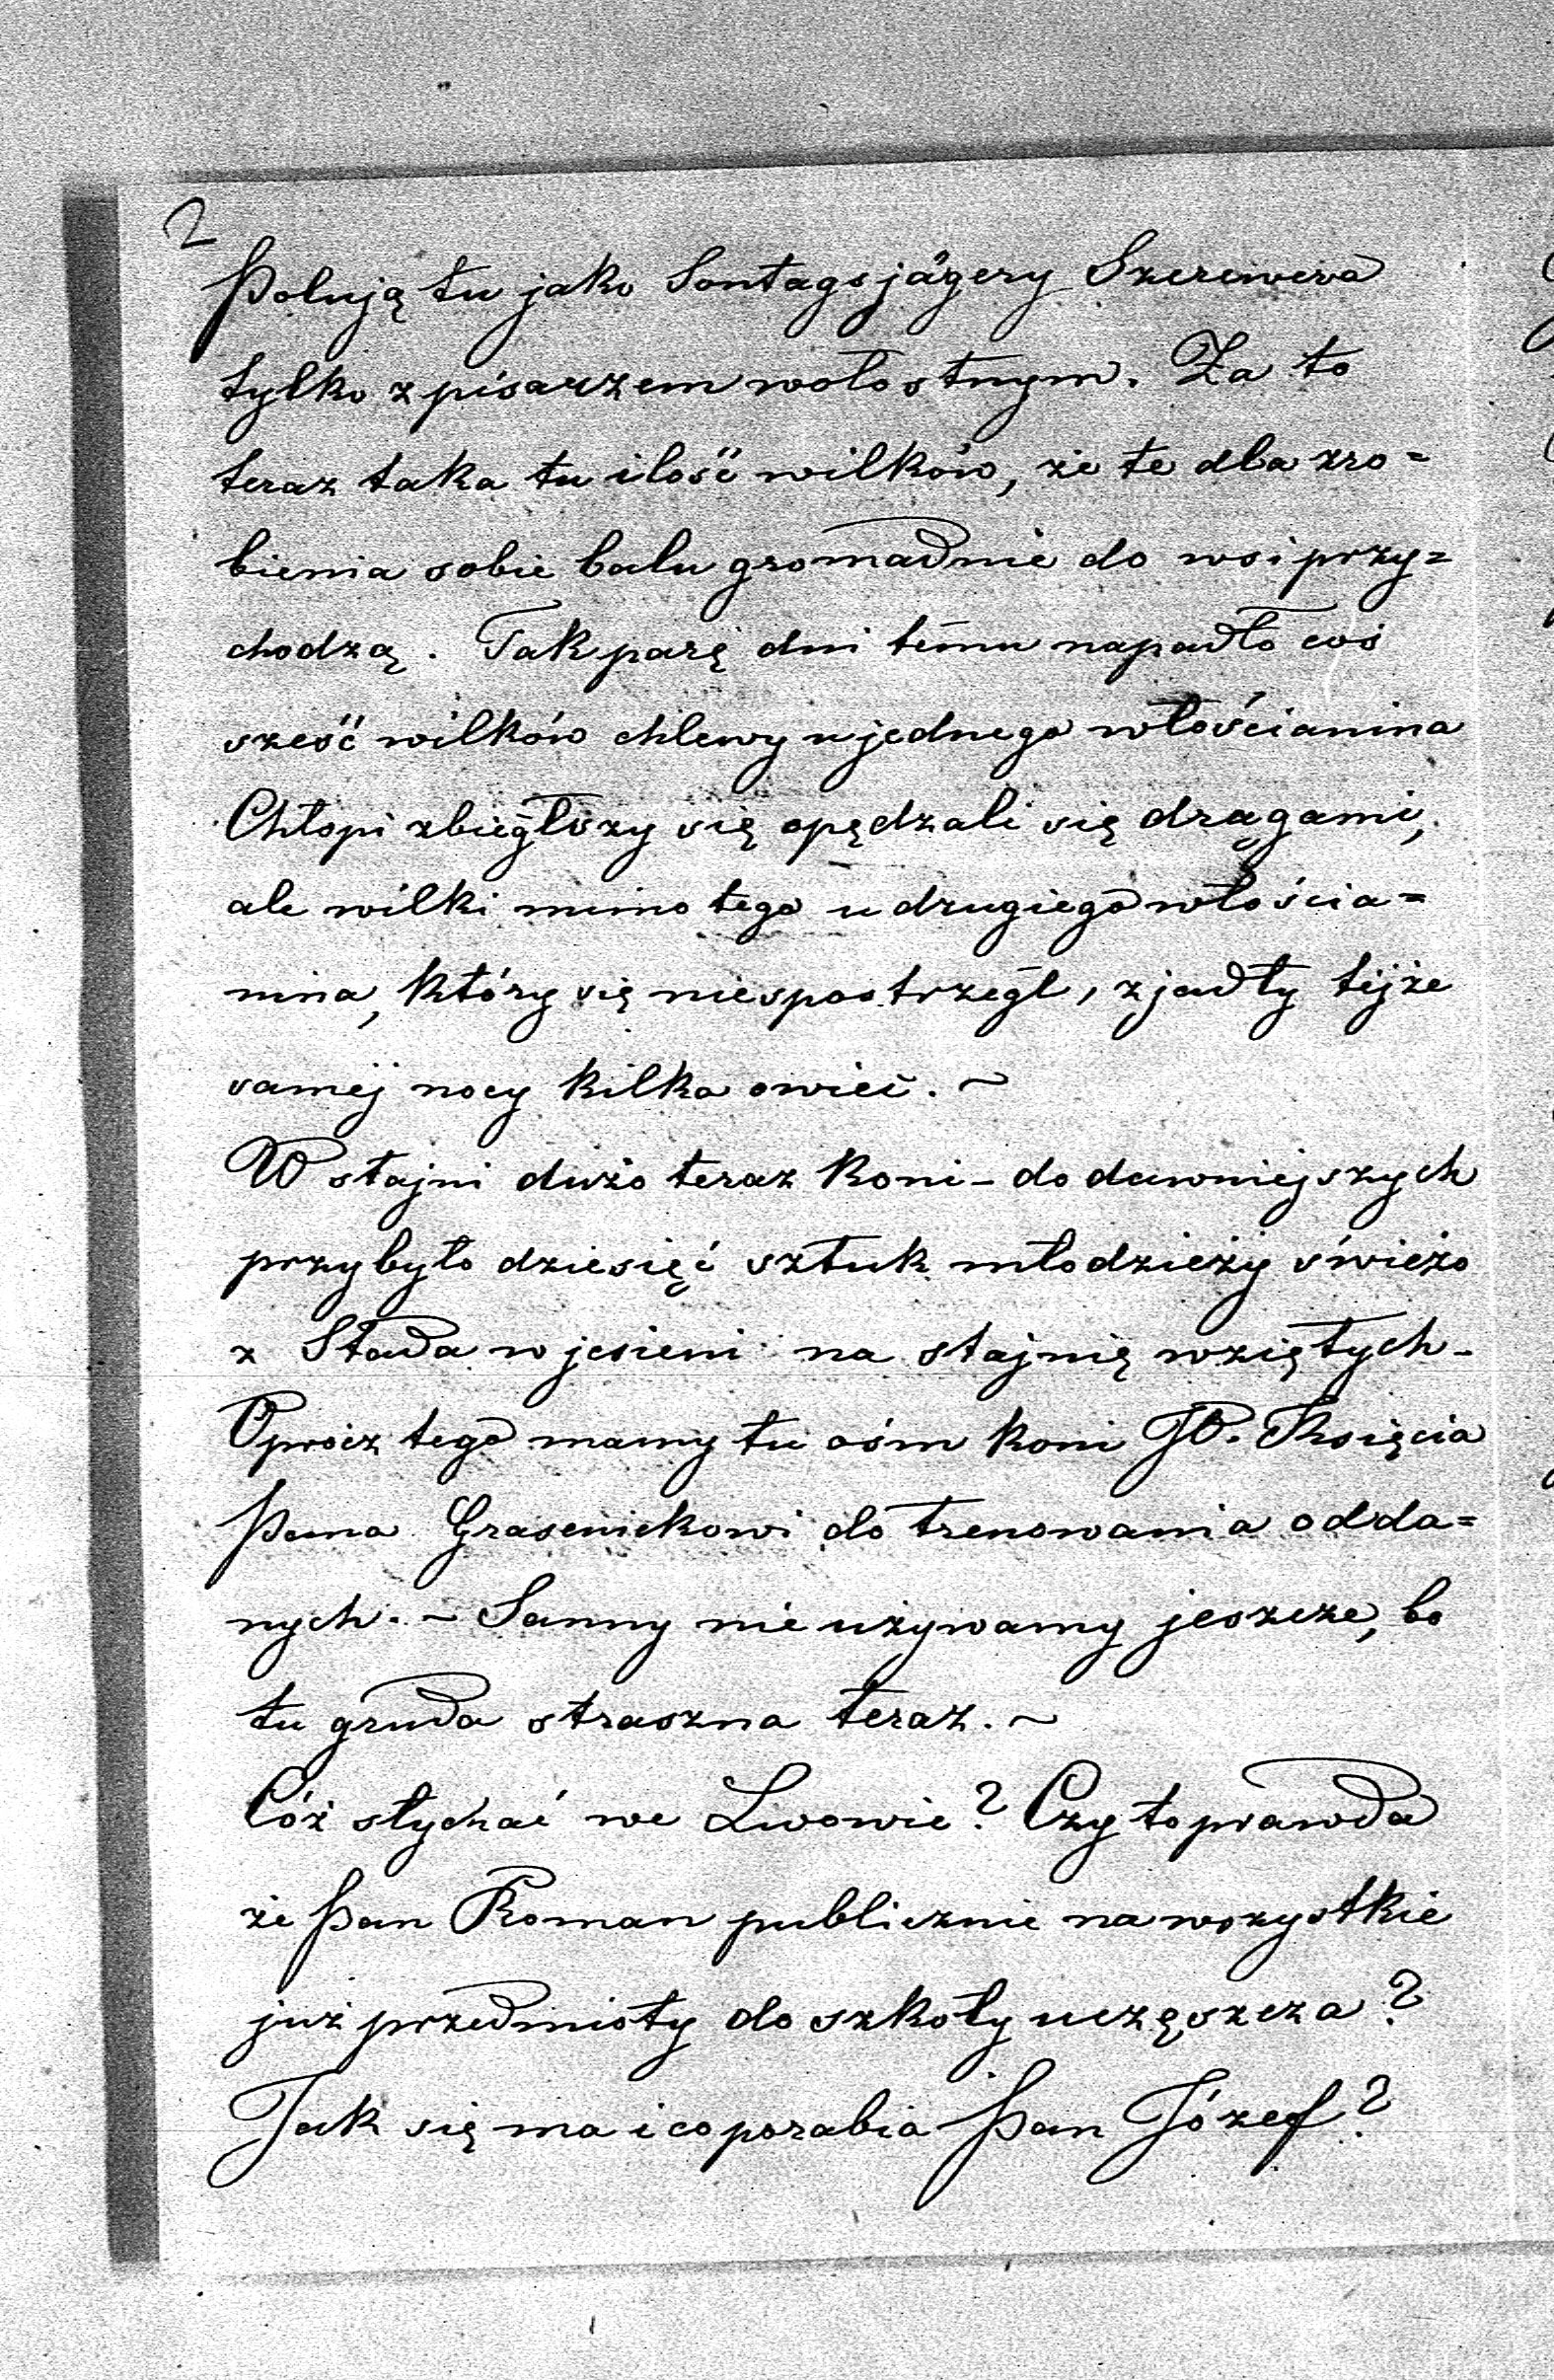 2
Polują tu jako Sontagsjägery Szerewera
tylko z pisarzem wołostnym. Za to
teraz taka tu ilość wilków, że te dla zro=
bienia sobie balu gromadnie do wsi przy=
chodzą. Tak parę dni temu napadło coś
sześć wilków chlewy u jednego włościanina
Chłopi zbiegłszy się opędzali się drągami,
ale wilki mimo tego u drugiego włościa=
nina, który się nie spostrzegł, zjadły tejże
samej nocy kilka owiec. ~
W stajni dużo teraz koni – do dawniejszych
przybyło dziesięć sztuk młodzieży świeżo
z Stada w jesieni na stajnię wziętych –
Oprócz tego mamy tu ośm koni JO. Księcia
Pana Grasenickowi do trenowania odda=
nych. ~ Sanny nie używamy jeszcze, bo
tu gruda straszna teraz. ~
Cóż słychać we Lwowie? Czy to prawda
że Pan Roman publicznie na wszystkie
już przedmioty do szkoły uczęszcza?
Jak się ma i co porabia Pan Józef?